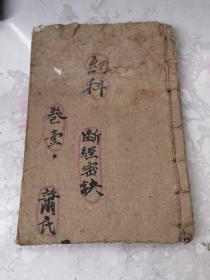 幼科
斷經密訣
卷壹.
蕭氏